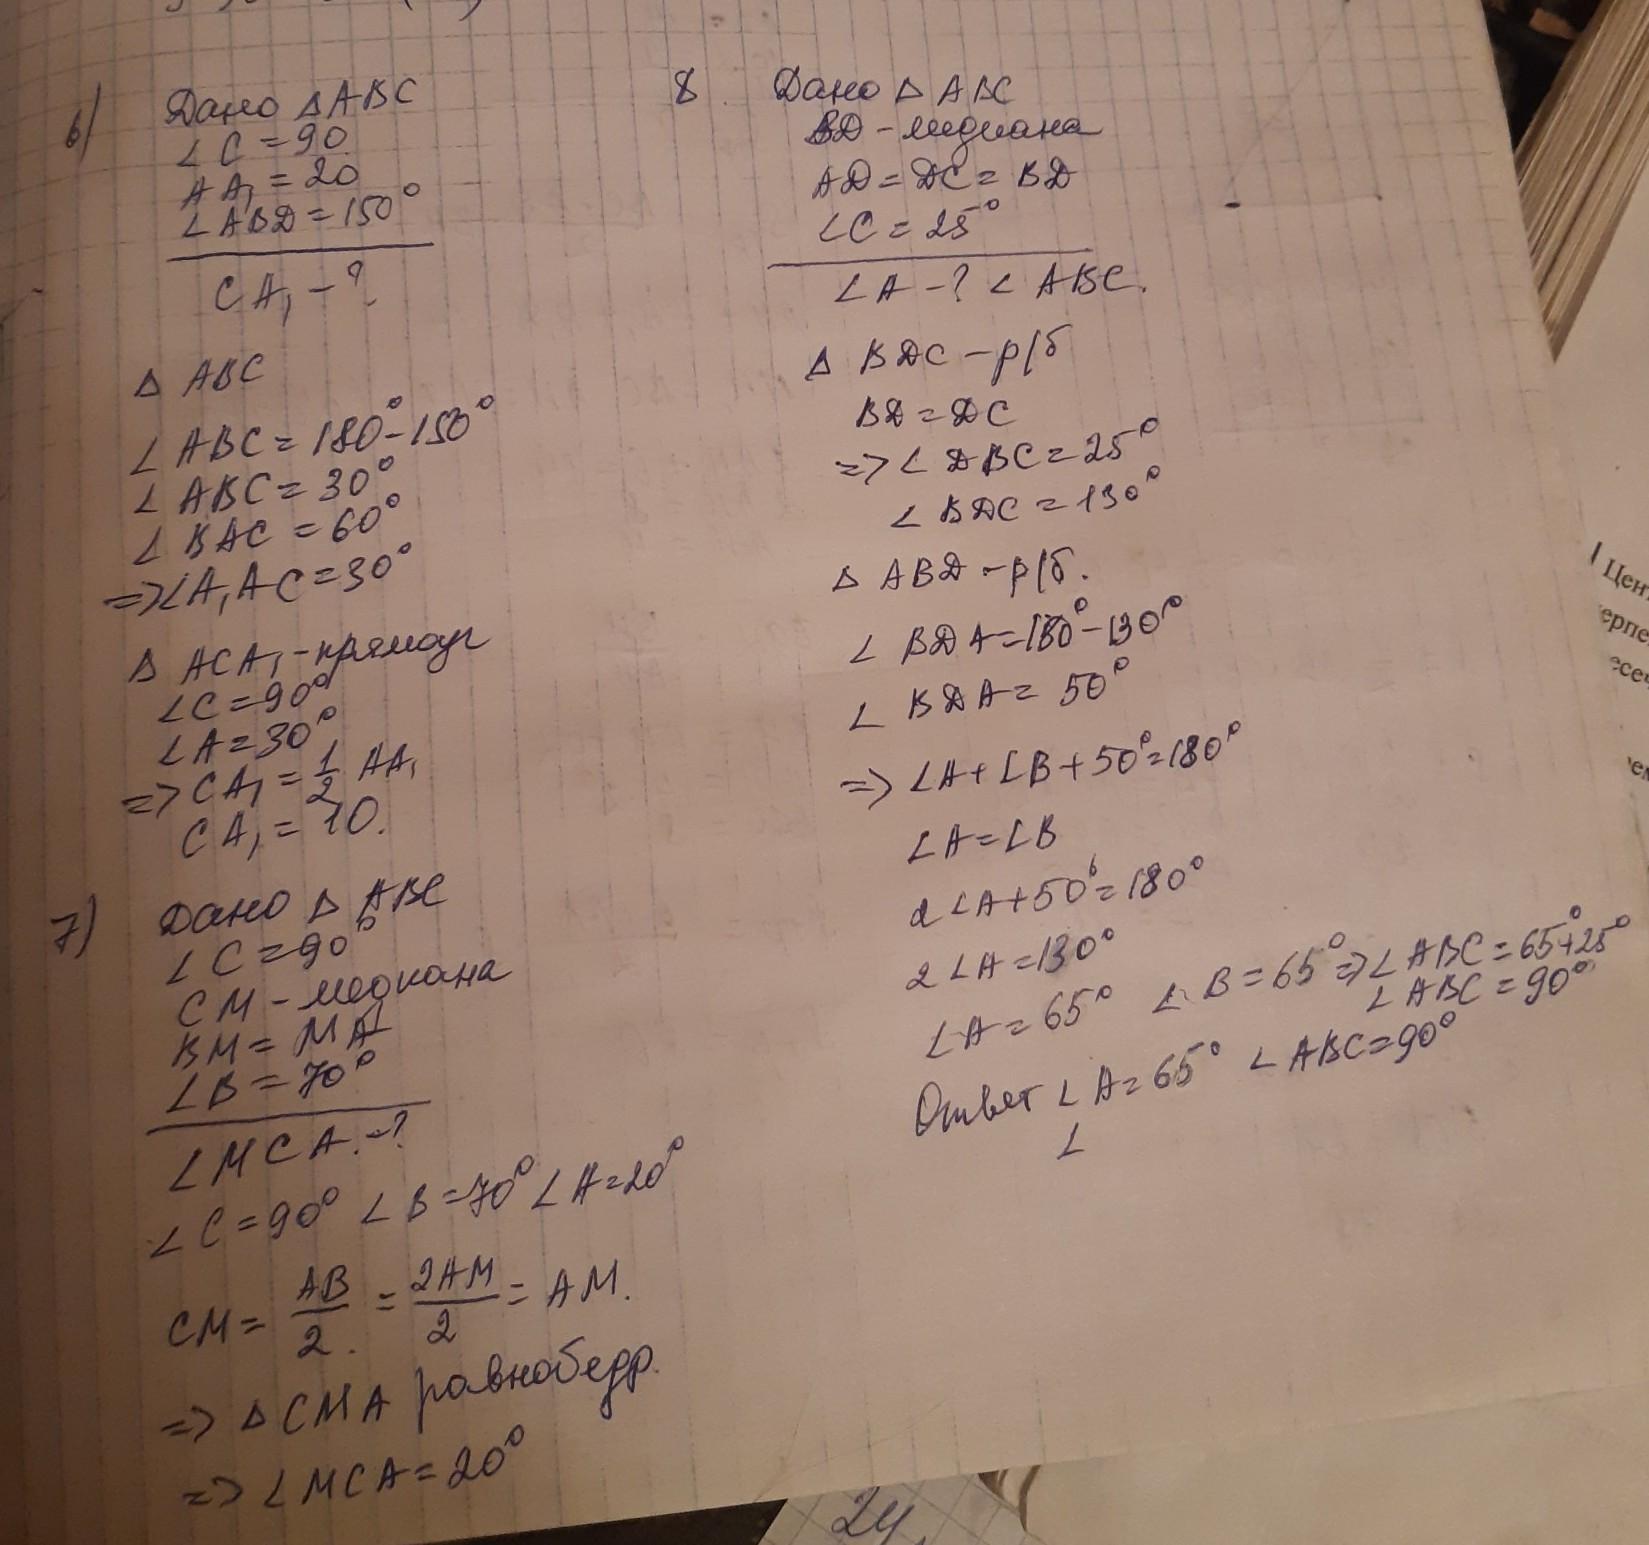 6)
Дано △ ABC
∠ C = 90
AA₁ = 20
∠ ABD = 150°
CA₁ - ?
△ ABC
∠ ABC = 180° - 150°
∠ ABC = 30°
∠ BAC = 60°
=> ∠A₁AC = 30°
△ ACA₁ - прямоуг
∠C = 90°
∠A = 30°
=> CA₁ = 1/2 AA₁
CA₁ = 10.
7)
Дано △ ABC
∠ C = 90°
CM - медиана
BM = MA
∠B = 70°
∠MCA. - ?
∠ C = 90° ∠ B = 70° ∠ A = 20°
CM = AB/2. = 2AM/2 = AM.
=> △ CMA равнобедр.
=> ∠ MCA = 20°
8
Дано △ ABC
BD - медиана
AD = DC = BD
∠C = 25°
∠A - ? ∠ ABC.
△ BDC - р/б
BD = DC
=> ∠ DBC = 25°
∠ BDC = 130°
△ ABD - р/б.
∠ BDA = 180° - 130°
∠ BDA = 50°
=> ∠A + ∠B + 50° = 180°
∠A = ∠B
2 ∠A + 50° = 180°
2 ∠A = 130°
∠A = 65° ∠ B = 65° => ∠ ABC = 65° + 25°
∠ ABC = 90°
Ответ ∠ A = 65° ∠ ABC = 90°
∠
Цен
ерпе
есеч
24.